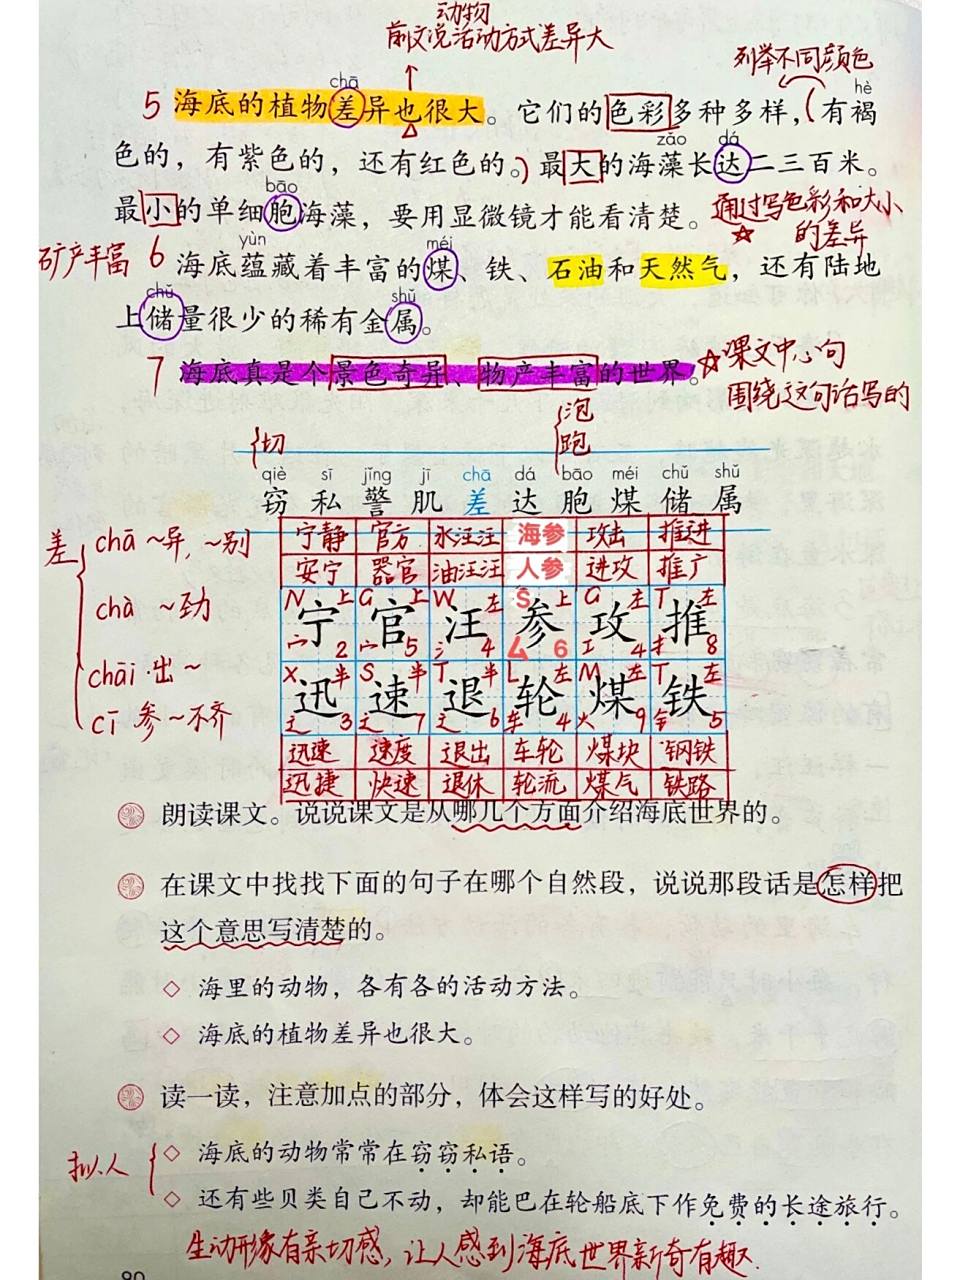 动物
前文说活动方式差异大
列举不同颜色
chā
hè
5 海底的植物差异也很大。它们的色彩多种多样,(有褐
zǎo dá
色的,有紫色的,还有红色的。)最大的海藻长达二三百米。
bāo
最小的单细胞海藻,要用显微镜才能看清楚。
通过写色彩和大小
的差异
yùn méi
矿产丰富 6 海底蕴藏着丰富的煤、铁、石油和天然气,还有陆地
chǔ shǔ
上储量很少的稀有金属。
7 海底真是个景色奇异、物产丰富的世界。
☆课文中心句
围绕这句话写的
切
泡
跑
qiè sī jǐng jī chā dá bāo méi chǔ shǔ
窃 私 警 肌 差 达 胞 煤 储 属
差
chā ~异,~别
chà ~劲
chāi 出~
cī 参~不齐
宁静 官方 水汪汪 海参 攻击 推进
安宁 器官 油汪汪 人参 进攻 推广
N 上 G 上 W 左 S 上 G 左 T 左
宁 官 汪 参 攻 推
宀 2 宀 5 氵 4 厶 6 工 4 扌 8
X 半 S 半 T 半 L 左 M 左 T 左
迅 速 退 轮 煤 铁
辶 3 辶 7 辶 6 车 4 火 9 钅 5
迅速 速度 退出 车轮 煤块 钢铁
迅捷 快速 退休 轮流 煤气 铁路
朗读课文。说说课文是从哪几个方面介绍海底世界的。
在课文中找找下面的句子在哪个自然段,说说那段话是怎样把
这个意思写清楚的。
◇ 海里的动物,各有各的活动方法。
◇ 海底的植物差异也很大。
读一读,注意加点的部分,体会这样写的好处。
拟人
◇ 海底的动物常常在窃窃私语。
◇ 还有些贝类自己不动,却能巴在轮船底下作免费的长途旅行。
生动形象有亲切感,让人感到海底世界新奇有趣.